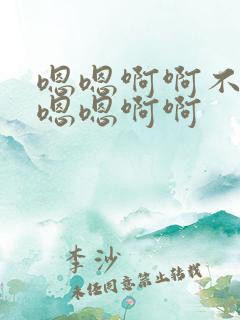 嗯嗯啊啊不
嗯嗯啊啊
李沙
未经同意禁止转载